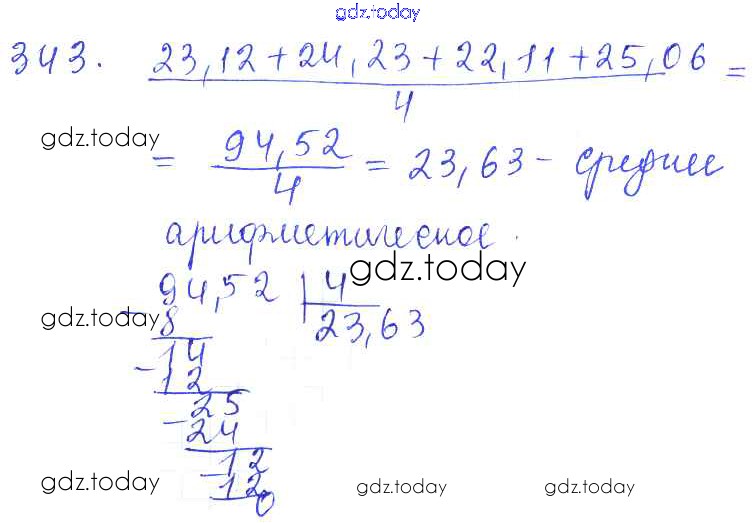 gdz.today
343. 23,12+24,23+22,11+25,06 =
4
gdz.today
= 94,52 = 23,63 - среднее
4
арифметическое.
gdz.today
94,52 4
gdz.today
- 8 23,63
14
- 12
25
- 24
12
- 12
0
gdz.today gdz.today gdz.today